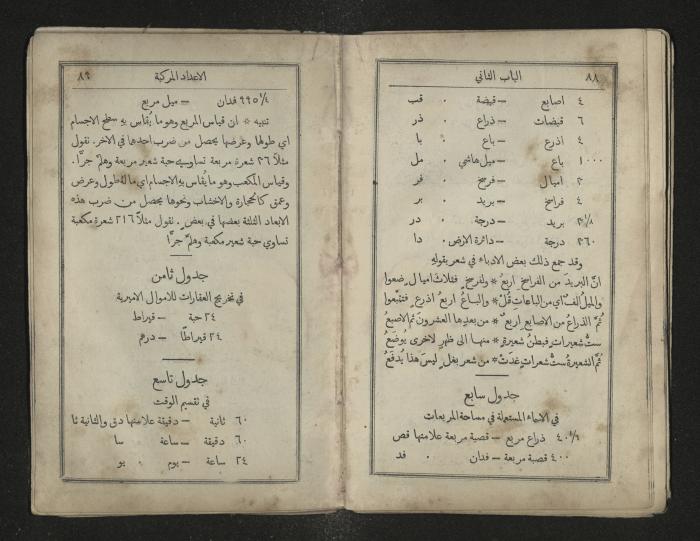 ٨٨ الباب الثاني
٤ اصابع — قبضة . قب
٦ قبضات — ذراع . ذر
٤ اذرع — باع . با
١٠٠٠ باع — ميل هاشمي . مل
٣ اميال — فرسخ . فر
٤ فراسخ — بريد . بر
بريد — درجة . در
٣٦٠ درجة — دائرة الارض . دا
وقد جمع ذلك بعض الادباء في شعر بقوله
انّ البريدَ من الفراسخ اربعٌ * ولفرسخٍ فثلاث اميال ضعوا
والميلُ الفٌ اي من الباعات قُلْ * والباعُ اربعُ اذرعٍ فتتبّعوا
ثُمَّ الذراعُ من الاصابع اربعٌ * من بعدها العشرون ثم الاصبعُ
ستُّ شعيراتٍ فبطنُ شعيرةٍ * منها الى ظهرٍ لاخرى يُوضَعُ
ثُمَّ الشعيرةُ ستُّ شعراتٍ غدَتْ * من شعر بغلٍ ليسَ هذا يُدفَعُ
جدول سابع
في الاسماء المستعملة في مساحة المربعات
ذراع مربع — قصبة مربعة علامتها قص
٤٠٠ قصبة مربعة — فدان . فد
الاعداد المركبة ٨٩
فدان — ميل مربع
تنبيه * ان قياس المربع وهو ما يُقاس به سطح الاجسام
اي طولها وعرضها يحصل من ضرب احدها في الاخر. نقول
مثلاً ٣٦ شعرة مربعة تساوي حبة شعير مربعة وهلمَّ جرّا.
وقياس المكعب وهو ما يُقاس به الاجسام اي ما لهُ طول وعرض
وعمق كالحجارة والاخشاب ونحوها يحصل من ضرب هذه
الابعاد الثلثة بعضها في بعض. نقول مثلاً ٢١٦ شعرة مكعبة
تساوي حبة شعير مكعبة وهلمَّ جرّا
جدول ثامن
في تخريج العقارات للاموال الاميرية
٢٤ حبة — قيراط
٢٤ قيراطًا — درهم
جدول تاسع
في تقسيم الوقت
٦٠ ثانية — دقيقة علامتها دق والثانية ثا
٦٠ دقيقة — ساعة سا
٢٤ ساعة — يوم . يو